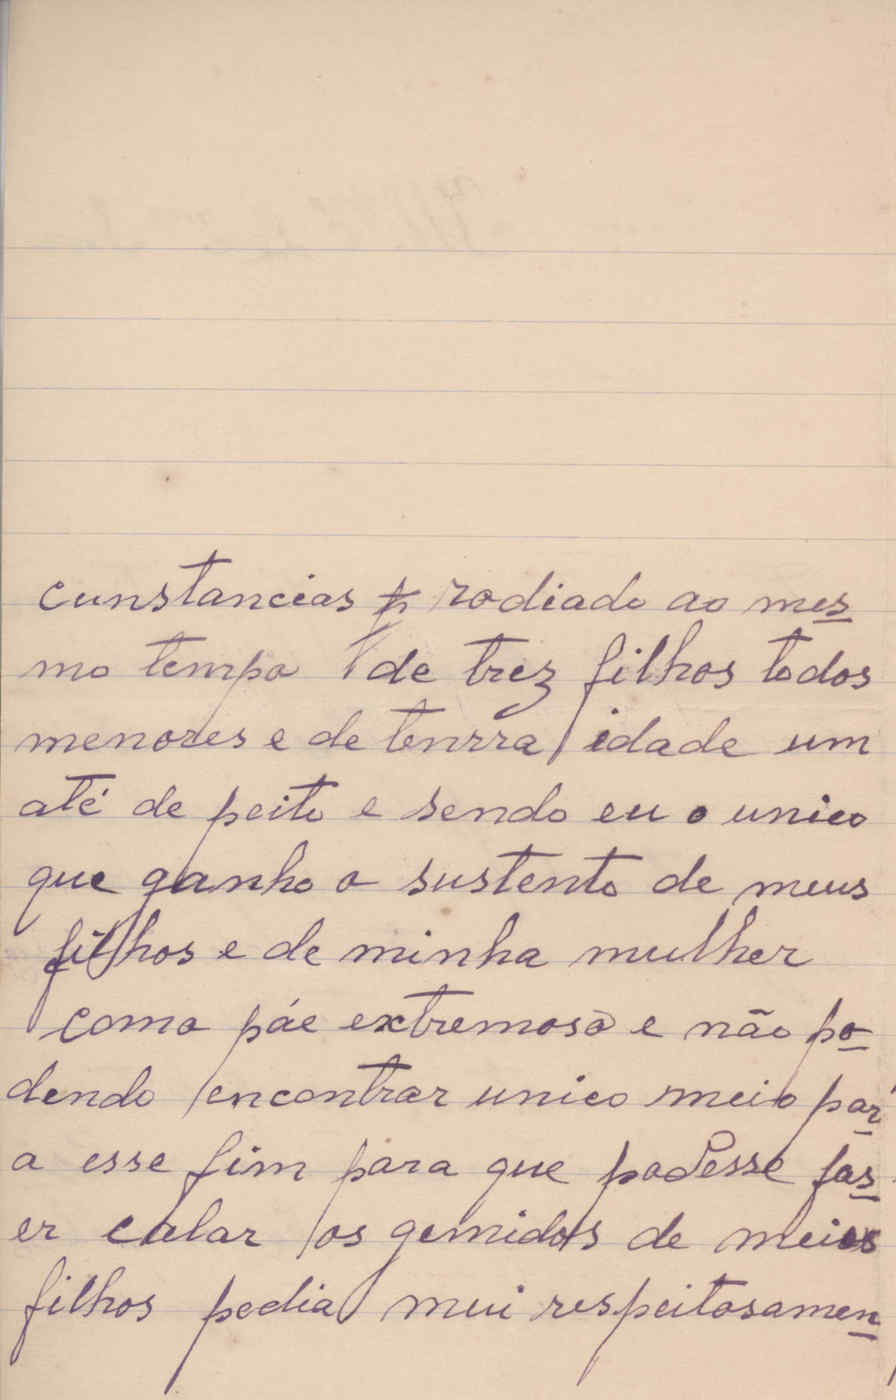 cunstancias rodiado ao mes
mo tempo de trez filhos todos
menores e de tenrra idade um
até de peito e sendo eu o unico
que ganho o sustento de meus
filhos e de minha mulher
como páe extremoso e não po
dendo encontrar unico meio par
a esse fim para que podesse fas
er calar os gemidos de meus
filhos pedia mui respeitosamen